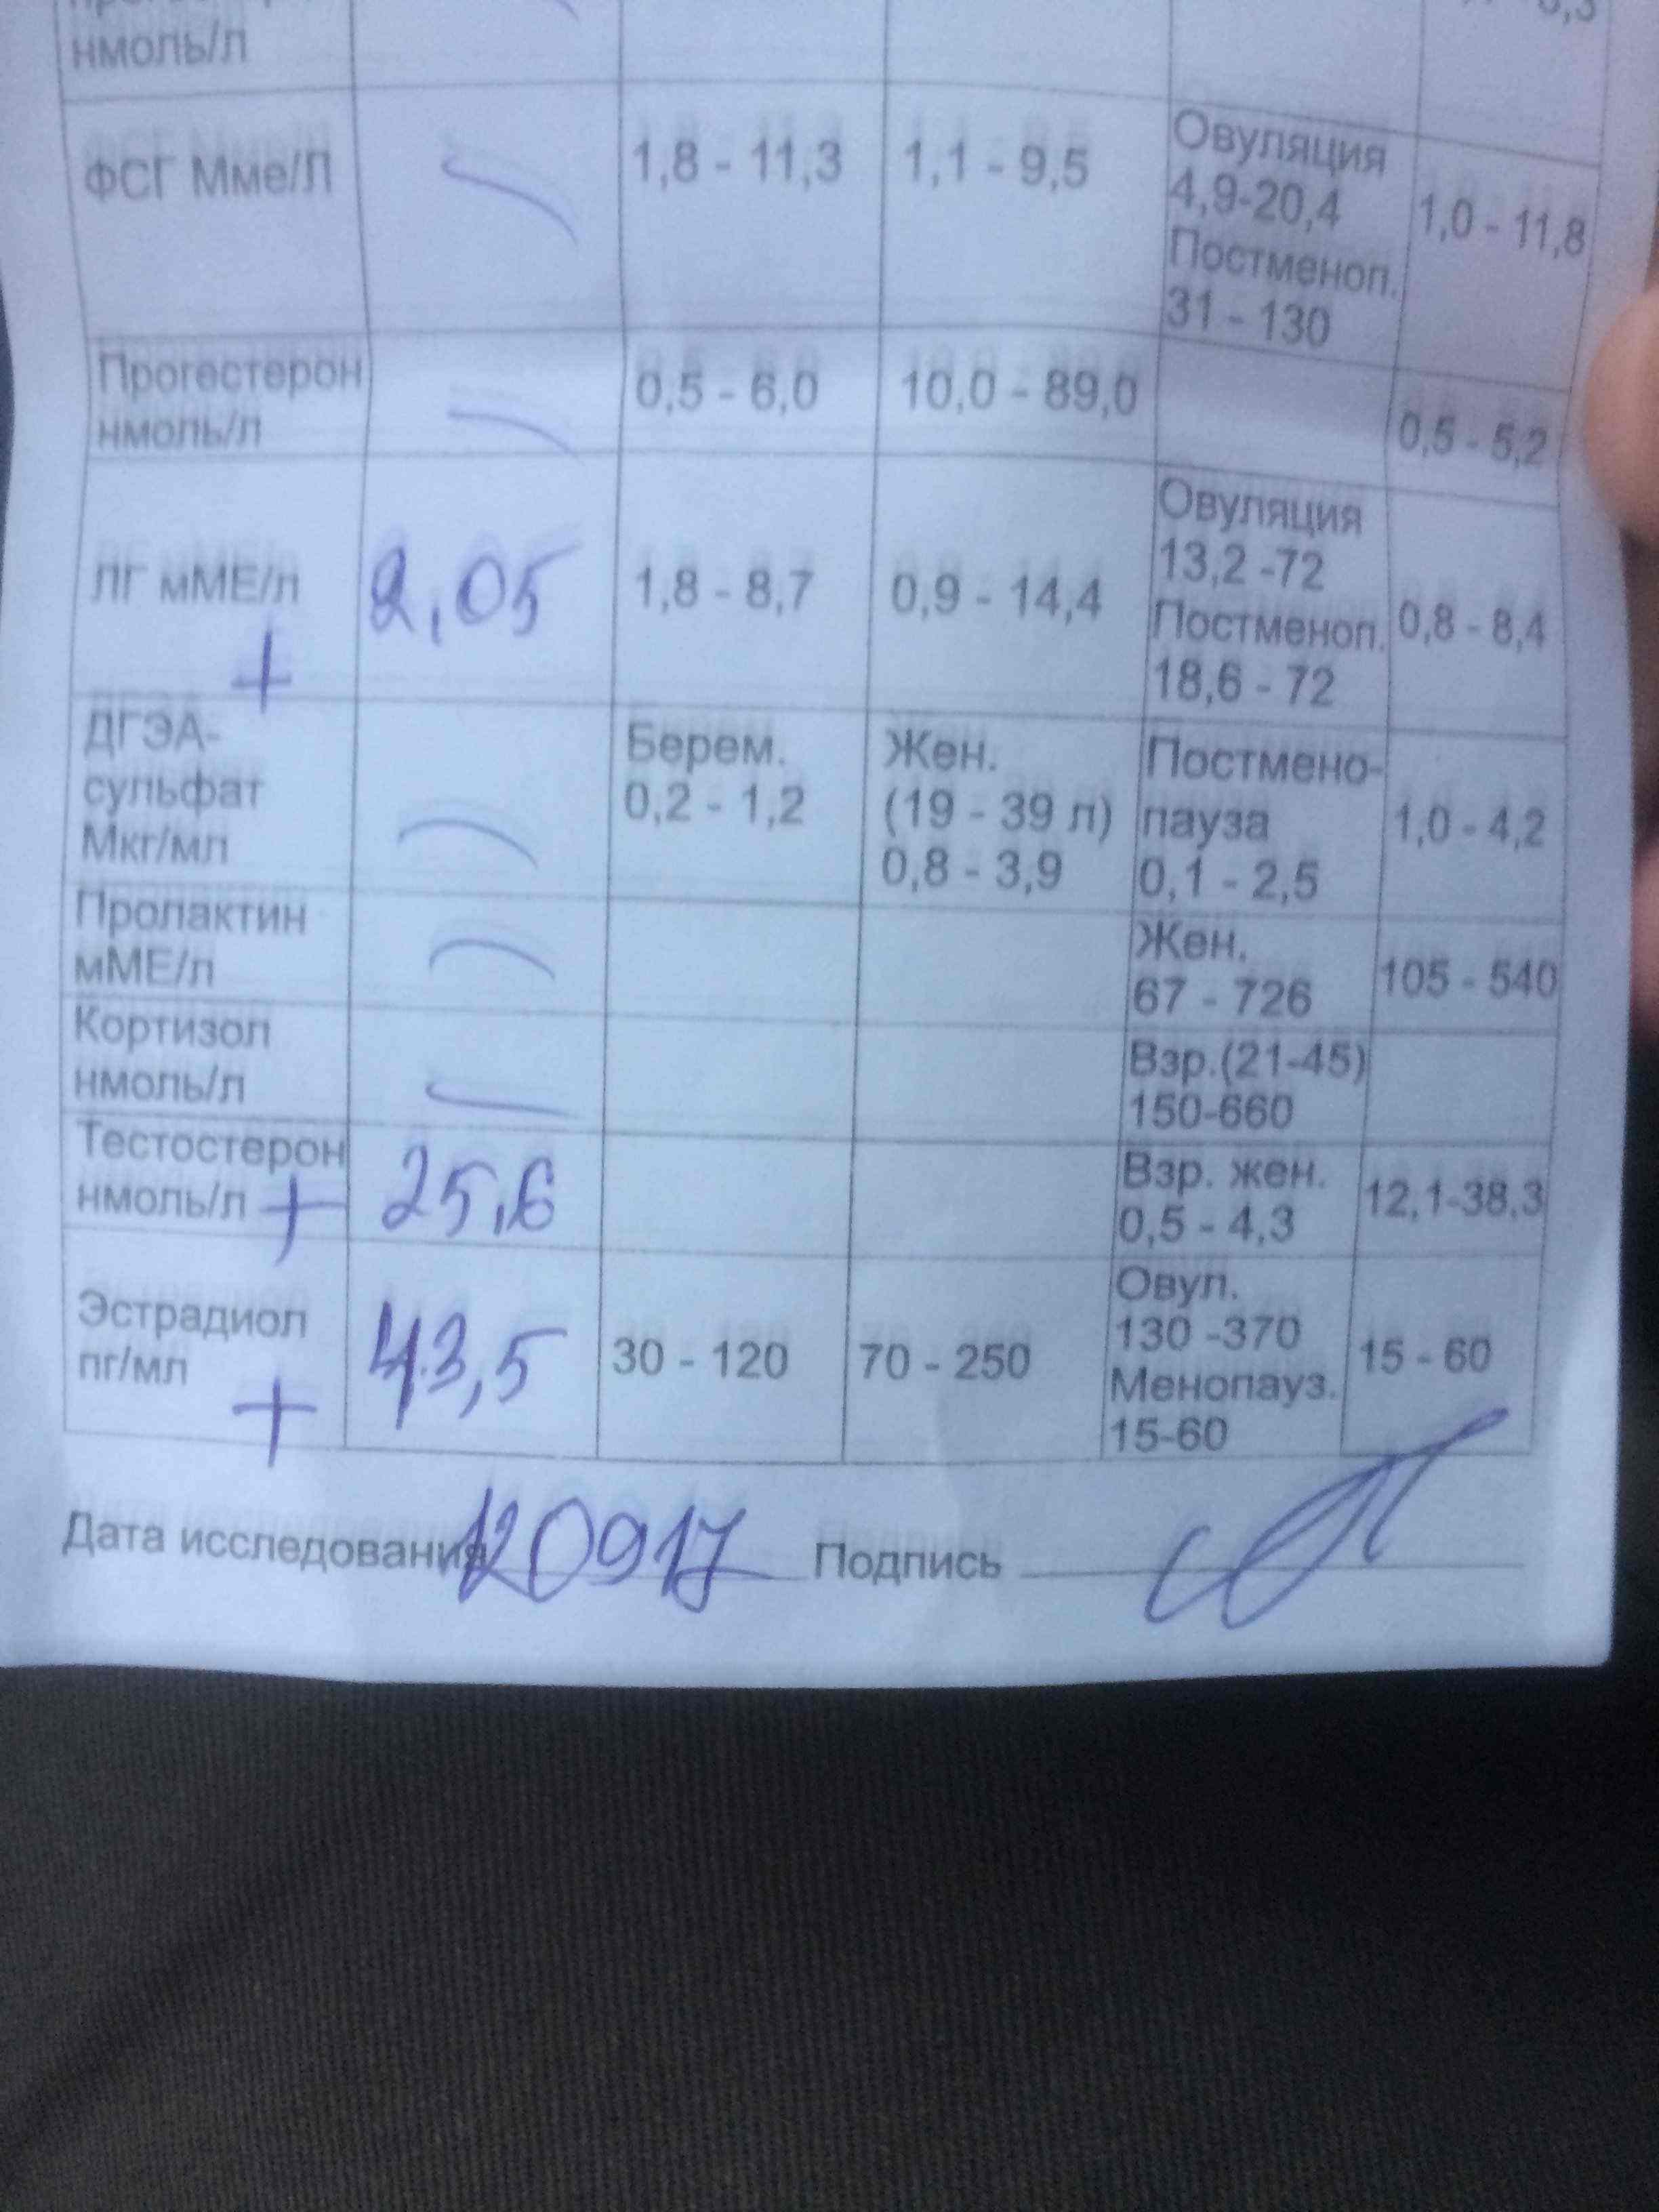 нмоль/л
ФСГ Мме/Л 1,8 - 11,3 1,1 - 9,5 Овуляция
4,9-20,4 1,0 - 11,8
Постменоп.
31 - 130
Прогестерон 0,5 - 6,0 10,0 - 89,0 0,5 - 5,2
нмоль/л
ЛГ мМЕ/л 2,05 1,8 - 8,7 0,9 - 14,4 Овуляция
13,2 -72 0,8 - 8,4
Постменоп.
+ 18,6 - 72
ДГЭА- Берем. Жен. Постмено-
сульфат 0,2 - 1,2 (19 - 39 л) пауза 1,0 - 4,2
Мкг/мл 0,8 - 3,9 0,1 - 2,5
Пролактин Жен. 105 - 540
мМЕ/л 67 - 726
Кортизол Взр.(21-45)
нмоль/л 150-660
Тестостерон 25,6 Взр. жен. 12,1-38,3
нмоль/л + 0,5 - 4,3
Эстрадиол 43,5 30 - 120 70 - 250 Овул.
пг/мл 130 -370 15 - 60
+ Менопауз.
15-60
Дата исследования 120917 Подпись